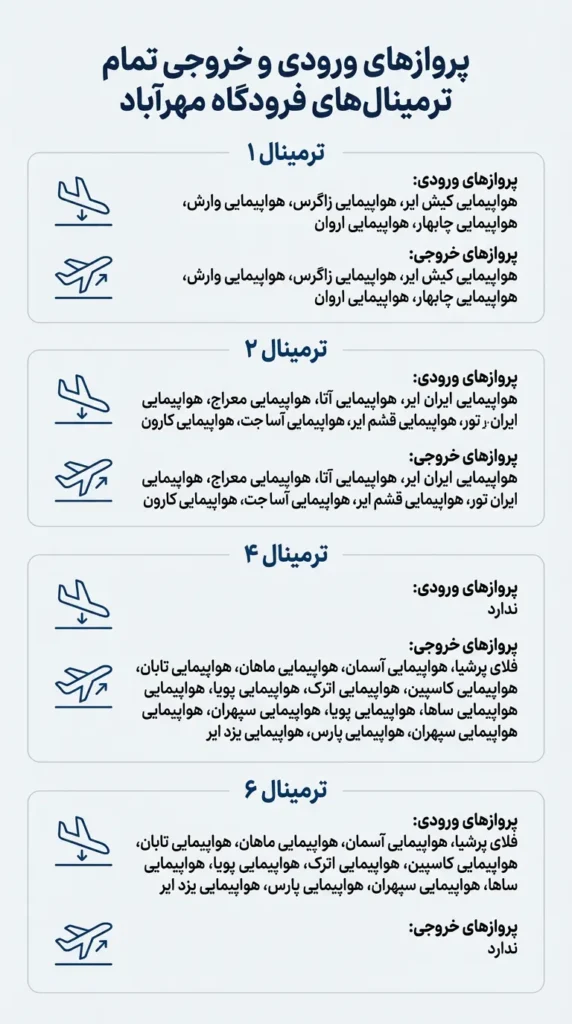 پروازهای ورودی و خروجی تمام
ترمینال‌های فرودگاه مهرآباد
ترمینال ۱
پروازهای ورودی:
هواپیمایی کیش ایر، هواپیمایی زاگرس، هواپیمایی وارش،
هواپیمایی چابهار، هواپیمایی اروان
پروازهای خروجی:
هواپیمایی کیش ایر، هواپیمایی زاگرس، هواپیمایی وارش،
هواپیمایی چابهار، هواپیمایی اروان
ترمینال ۲
پروازهای ورودی:
هواپیمایی ایران ایر، هواپیمایی آتا، هواپیمایی معراج، هواپیمایی
ایران تور، هواپیمایی قشم ایر، هواپیمایی آسا جت، هواپیمایی کارون
پروازهای خروجی:
هواپیمایی ایران ایر، هواپیمایی آتا، هواپیمایی معراج، هواپیمایی
ایران تور، هواپیمایی قشم ایر، هواپیمایی آسا جت، هواپیمایی کارون
ترمینال ۴
پروازهای ورودی:
ندارد
پروازهای خروجی:
فلای پرشیا، هواپیمایی آسمان، هواپیمایی ماهان، هواپیمایی تابان،
هواپیمایی کاسپین، هواپیمایی اترک، هواپیمایی پویا، هواپیمایی
هواپیمایی ساها، هواپیمایی پویا، هواپیمایی سپهران، هواپیمایی
هواپیمایی سپهران، هواپیمایی پارس، هواپیمایی یزد ایر
ترمینال ۶
پروازهای ورودی:
فلای پرشیا، هواپیمایی آسمان، هواپیمایی ماهان، هواپیمایی تابان،
هواپیمایی کاسپین، هواپیمایی اترک، هواپیمایی پویا، هواپیمایی
ساها، هواپیمایی سپهران، هواپیمایی پارس، هواپیمایی یزد ایر
پروازهای خروجی:
ندارد